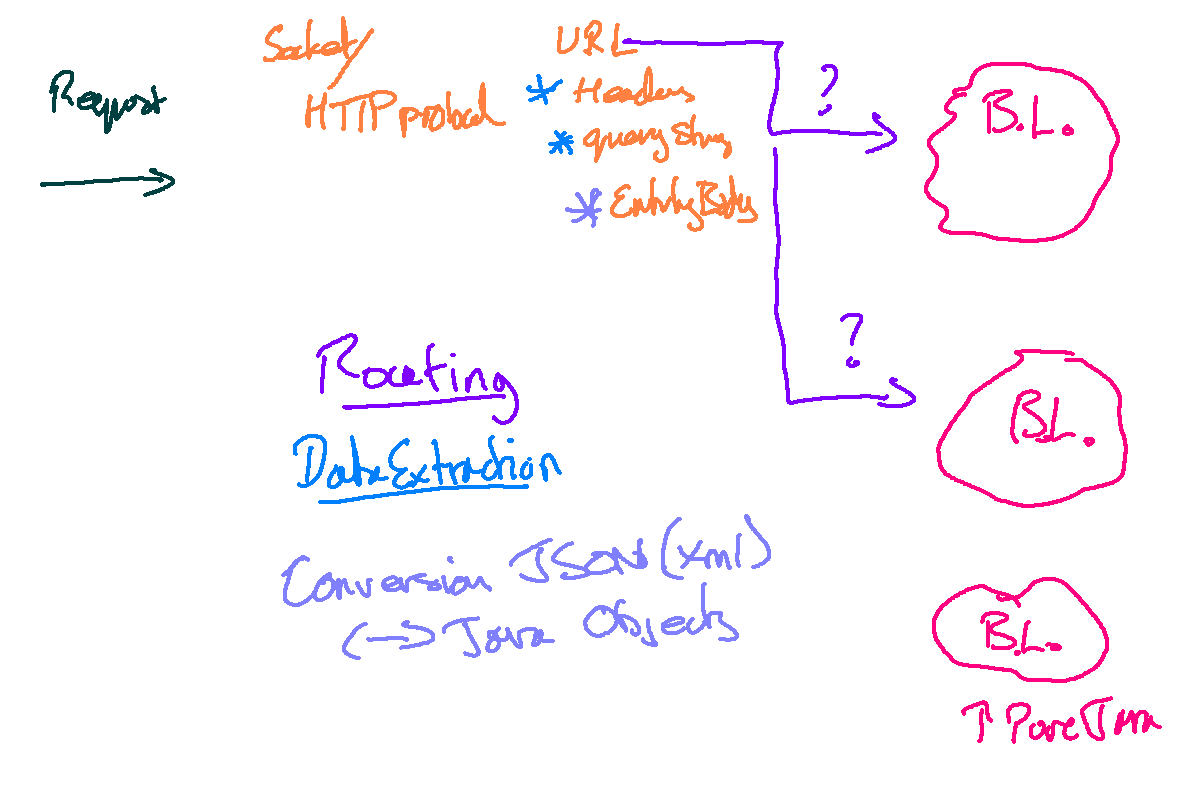 Request
Socket/
HTTP protocol
URL
* Headers
* query string
* Entity Body
?
B.L.
?
B.L.
Routing
Data Extraction
Conversion JSON (xml)
<-> Java Objects
B.L.
↑ Pure Java